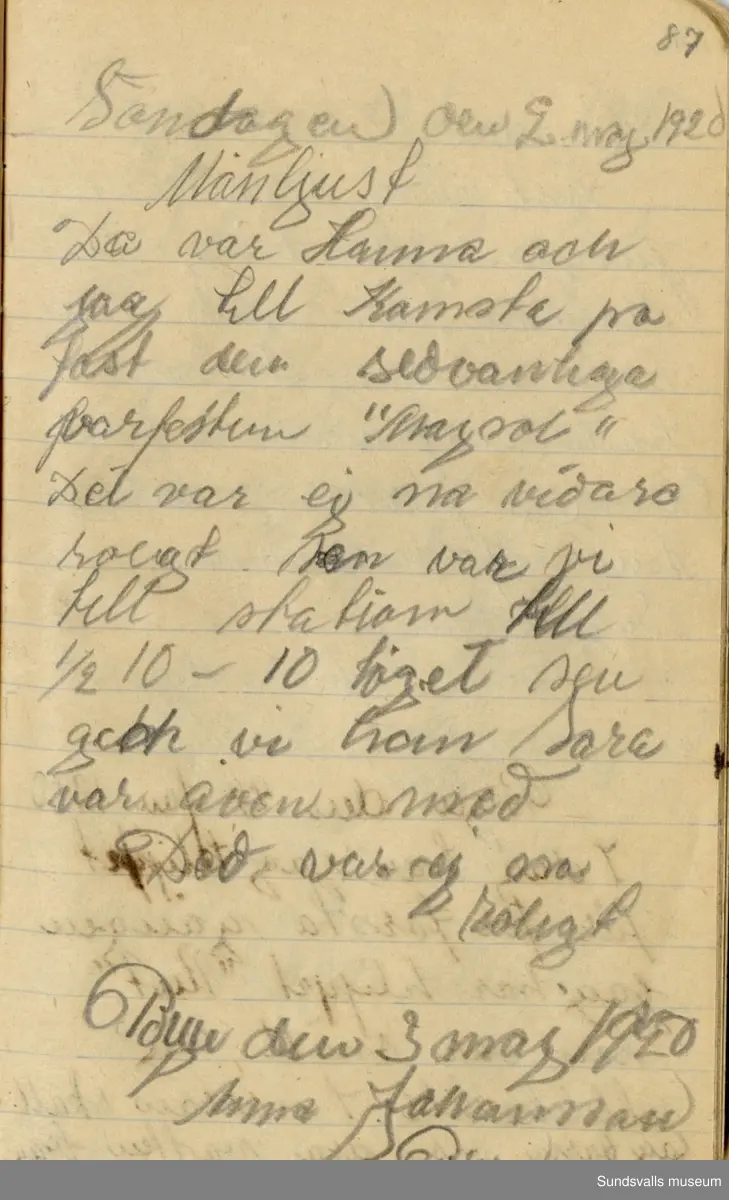 87
Söndagen den 2 maj 1920
Månljust
Da var Hanna och
jag till Kamsta på
fast den sedvanliga
varfesten "Majsol"
Det var ej na vidare
roligt sen var vi
till station till
½ 10 – 10 toget sen
geck vi hem Sara
var även med
Ded var ej sa
roligt
den 3 maj 1920
Anna Johansson
Sundsvalls museum